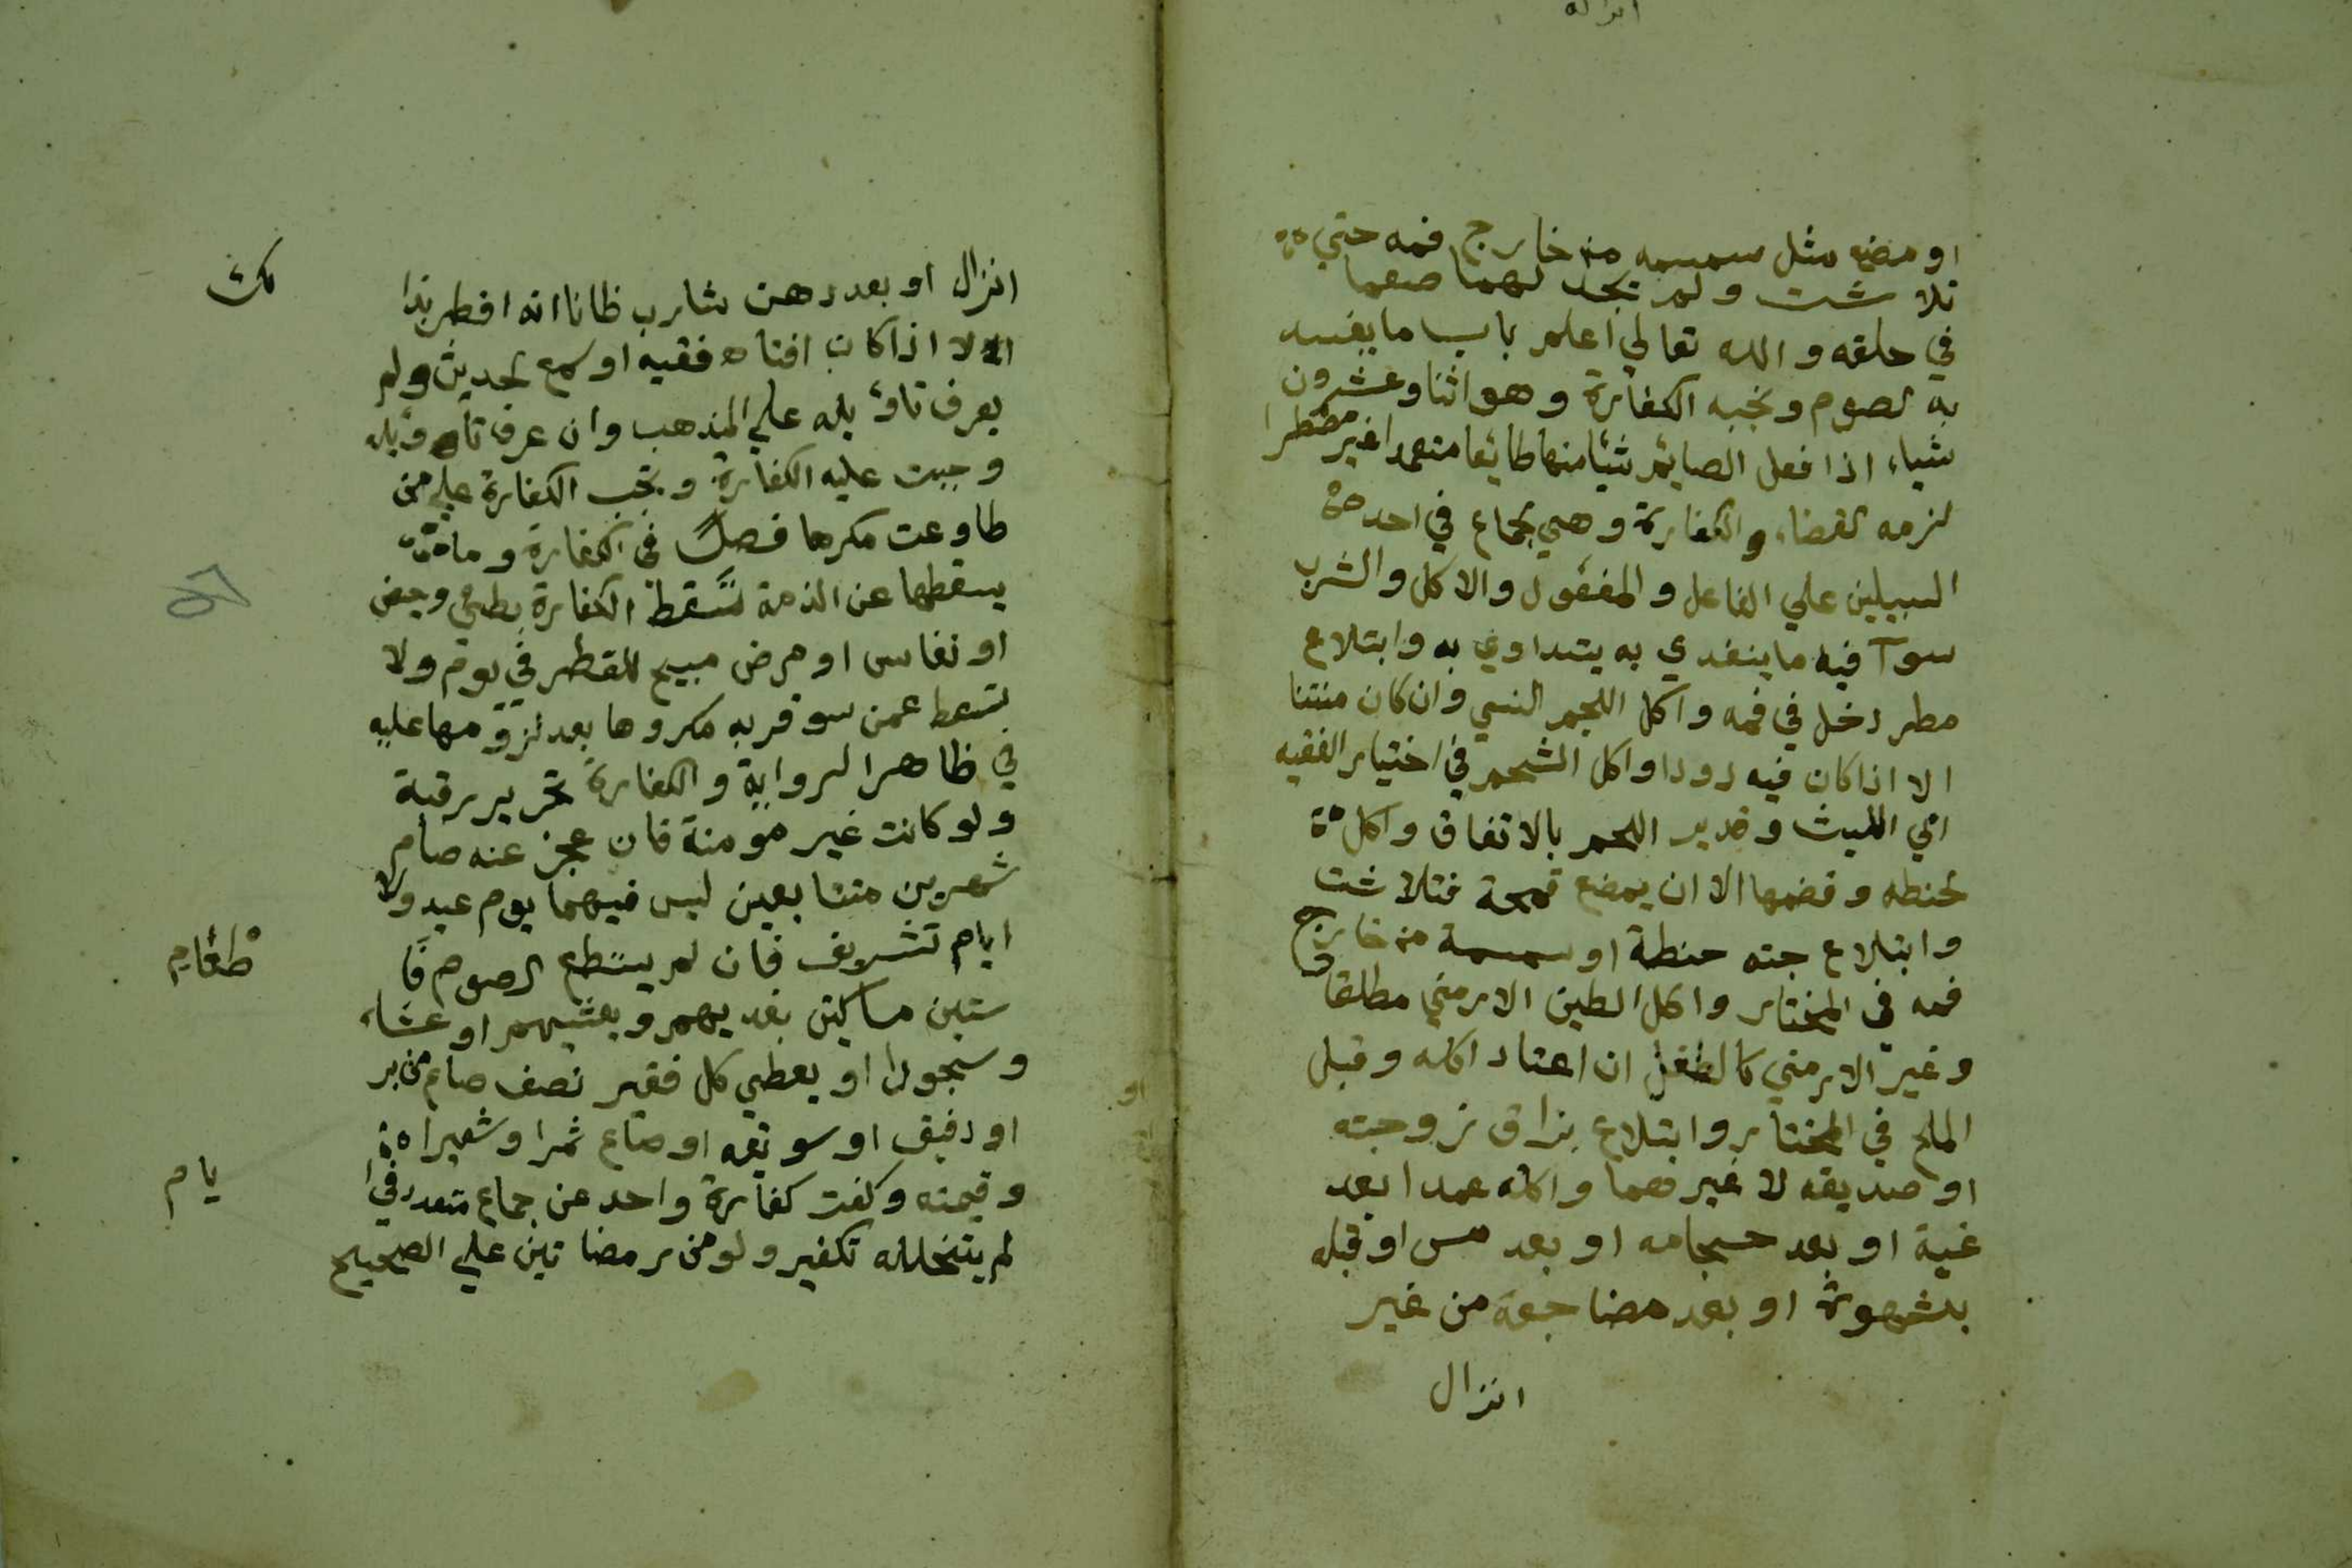 او مضغ مثل سمسمه من خارج فمه حتي
تلا شت ولم تجد لهما صعما
في حلقه والله تعالي اعلم باب ما يفسد
به لصوم وتجبه الكفارة وهو اثنا وعشرون
شياء اذا فعل الصايم شيا منها طايعا متعمدا غير مضطرا
لزمه لقضاء والكفارة وهي لجماع في احد
السبيلين علي الفاعل والمفعول والاكل والشرب
سوآ فيه ما يتغدي به يتداوي به وابتلاع
مطر دخل في فمه واكل اللحم النسي وان كان منتنا
الا اذا كان فيه دودا واكل الشحم في اختيار الفقيه
ابي الليث وقديد اللحم بالاتفاق واكل
لحنطه وقضمها الا ان يمضغ قمحة فتلا شت
وابتلاع حبته حنطة او سمسمة من خارج
فمه في المختار واكل الطين الارمني مطلقا
وغير الارمني كالطفل ان اعتاد اكله وقبل
الملح في المختار وابتلاع بزاق زوجته
او صديقه لا غيرهما واكله عمدا بعد
غيبة او بعد حجامه او بعد مس او قبله
بشهوة او بعد مضاجعة من غير
انزال
انزال او بعد دهن شارب ظانا انه افطر بذا
لك
الا اذا كان افتاه فقيه او سمع لحديث ولم
يعرف تاؤيله علي المذهب وان عرف تاويله
وجبت عليه الكفارة وتجب الكفارة علي من
طاوعت مكرها فصل في الكفارة وما
يسقطها عن الذمة تسقط الكفارة بطري وحيض
او نفاس او مرض مبيح للفطر في يوم ولا
تسقط عمن سوفر به مكروها بعد لزومها عليه
في ظاهر الرواية والكفارة تحرير رقبة
ولو كانت غير مومنة فان عجز عنه صام
شهرين متتابعين ليس فيهما يوم عيد ولا
ايام تشريف فان لم يسطع الصوم فا
طعام
ستين مساكين يغديهم ويعشيهم او عشاء
وسحورا او يعطي كل فقير نصف صاع من بر
او دقيق او سويقه او صاع ثمرا وشعيرا
وقيمته وكفت كفارة واحد عن جماع متعدد في ا
يام
لم يتخلله تكفير ولو من رمضا نين علي الصحيح